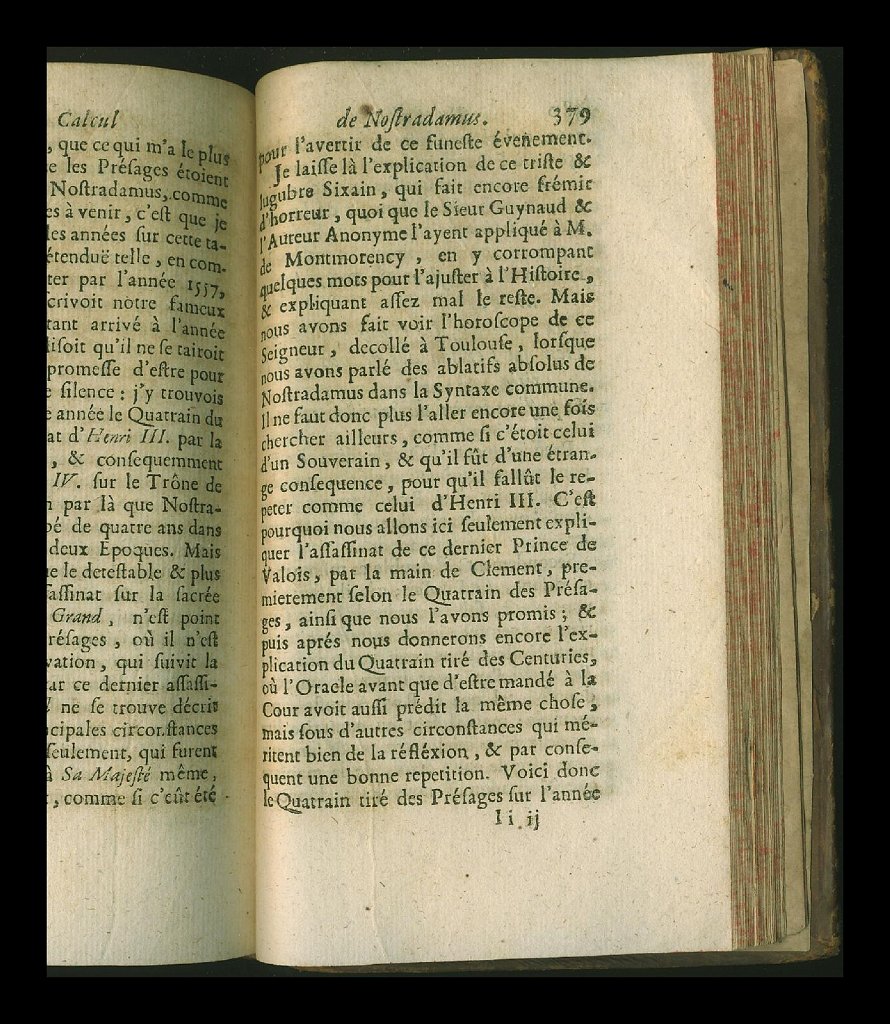 Calcul
, que ce qui m'a le plus
e les Préſages étoient
Noſtradamus, comme
es à venir, c'eſt que je
les années ſur cette ta-
étenduë telle, en com-
ter par l'année 1557,
crivoit nôtre fameux
tant arrivé à l'année
liſoit qu'il ne ſe tairoit
promeſſe d'eſtre pour
e ſilence : j'y trouvois
e année le Quatrain du
at d'Henri III. par la
, & conſequemment
IV. ſur le Trône de
n par là que Noſtra-
pé de quatre ans dans
deux Epoques. Mais
ue le deteſtable & plus
ſaſſinat ſur la ſacrée
Grand, n'eſt point
réſages, où il n'eſt
vation, qui ſuivit la
ar ce dernier aſſaſſi-
l ne ſe trouve décris
ncipales circonſtances
ſeulement, qui furent
à Sa Majeſté même,
, comme ſi c'eût été
de Noſtradamus. 379
pour l'avertir de ce funeſte évenement.
Je laiſſe là l'explication de ce triſte &
lugubre Sixain, qui fait encore frémir
d'horreur, quoi que le Sieur Guynaud &
l'Auteur Anonyme l'ayent appliqué à M.
de Montmorency, en y corrompant
quelques mots pour l'ajuſter à l'Hiſtoire,
& expliquant aſſez mal le reſte. Mais
nous avons fait voir l'horoſcope de ce
Seigneur, decollé à Toulouſe, lorſque
nous avons parlé des ablatifs abſolus de
Noſtradamus dans la Syntaxe commune.
Il ne faut donc plus l'aller encore une fois
chercher ailleurs, comme ſi c'étoit celui
d'un Souverain, & qu'il fût d'une étran-
ge conſequence, pour qu'il fallût le re-
peter comme celui d'Henri III. C'eſt
pourquoi nous allons ici ſeulement expli-
quer l'aſſaſſinat de ce dernier Prince de
Valois, par la main de Clement, pre-
mierement ſelon le Quatrain des Préſa-
ges, ainſi que nous l'avons promis ; &
puis aprés nous donnerons encore l'ex-
plication du Quatrain tiré des Centuries,
où l'Oracle avant que d'eſtre mandé à la
Cour avoit auſſi prédit la même choſe,
mais ſous d'autres circonſtances qui mé-
ritent bien de la réfléxion, & par conſe-
quent une bonne repetition. Voici donc
le Quatrain tiré des Préſages ſur l'année
I i ij